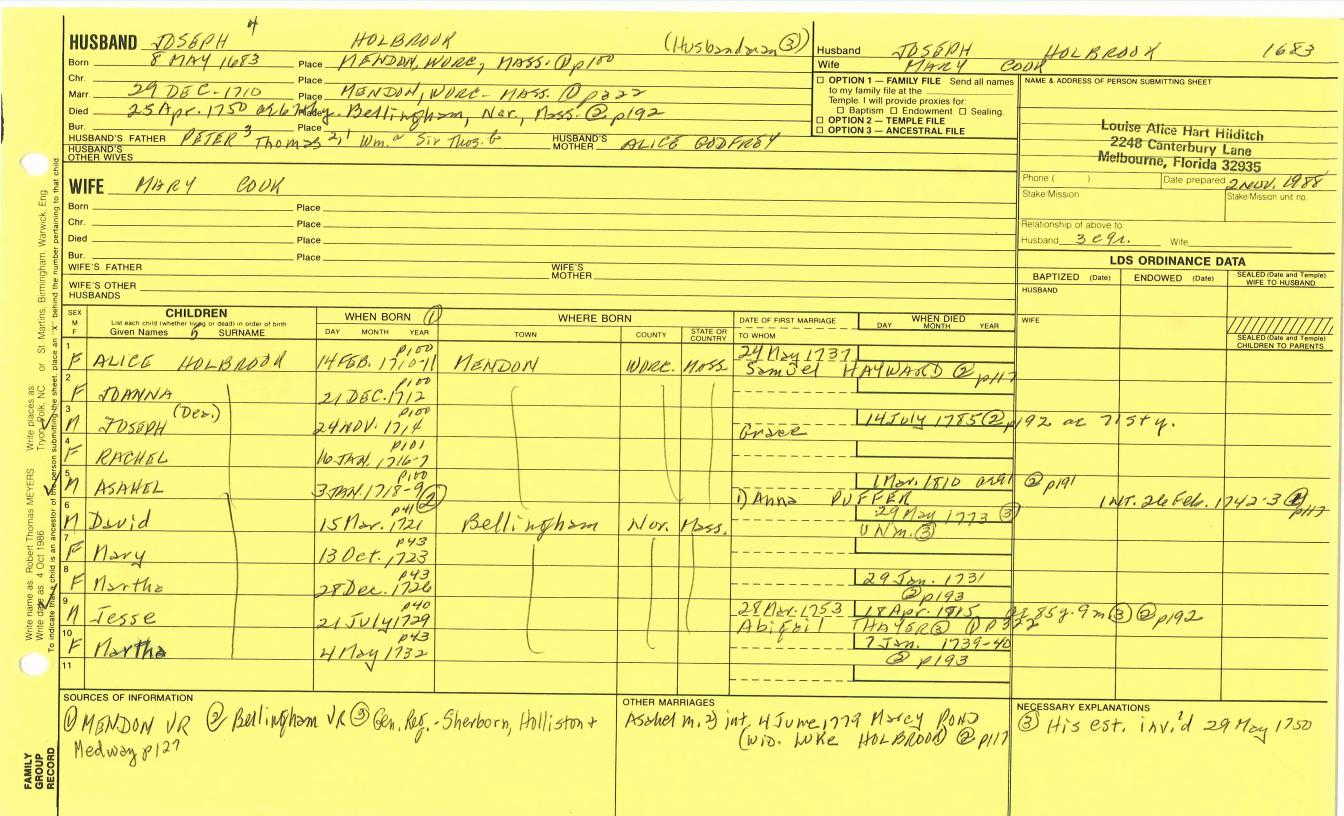 HUSBAND JOSEPH 4 HOLBROOK (Husbandman ③)
Born 8 MAY 1683 Place MENDON, WORC, MASS. ① p100
Chr. Place
Marr 29 DEC. 1710 Place MENDON, WORC. MASS. ① p322
Died 25 Apr. 1750 Place Bellingham, Nor, Mass. ② p192
Bur. Place
HUSBAND'S FATHER PETER 3 Thomas 2,1 Wm. a Sir Thos. b HUSBAND'S MOTHER ALICE GODFREY
HUSBAND'S OTHER WIVES
Husband JOSEPH HOLBROOK 1683
Wife MARY COOK
☐ OPTION 1 — FAMILY FILE Send all names
to my family file at the
Temple. I will provide proxies for:
☐ Baptism ☐ Endowment ☐ Sealing.
☐ OPTION 2 — TEMPLE FILE
☐ OPTION 3 — ANCESTRAL FILE
NAME & ADDRESS OF PERSON SUBMITTING SHEET
Louise Alice Hart Hilditch
2248 Canterbury Lane
Melbourne, Florida 32935
Phone ( ) Date prepared 2 NOV. 1988
Stake/Mission Stake/Mission unit no.
Relationship of above to:
Husband 3 c gr. Wife
WIFE MARY COOK
Born Place
Chr. Place
Died Place
Bur. Place
WIFE'S FATHER WIFE'S MOTHER
WIFE'S OTHER HUSBANDS
LDS ORDINANCE DATA
BAPTIZED (Date) ENDOWED (Date) SEALED (Date and Temple) WIFE TO HUSBAND
HUSBAND
WIFE
SEALED (Date and Temple) CHILDREN TO PARENTS
SEX M F
CHILDREN
List each child (whether living or dead) in order of birth
Given Names 5 SURNAME
WHEN BORN ①
DAY MONTH YEAR
WHERE BORN
TOWN COUNTY STATE OR COUNTRY
DATE OF FIRST MARRIAGE
TO WHOM
WHEN DIED
DAY MONTH YEAR
1 F ALICE HOLBROOK 14 FEB. 1710-11 p100 MENDON WORC. MASS. 24 May 1737
Samuel HAYWARD ② p117
2 F JOANNA 21 DEC. 1712 p100
3 M JOSEPH (Dea.) 24 NOV. 1714 p100 14 July 1785 ② p192 ae 71st y.
Grace
4 F RACHEL 16 JAN. 1716-7 p101
5 M ASAHEL 3 JAN. 1718-9 p100 ② 1 Mar. 1810 ae 91 ② p191
1) Anna PUFFER INT. 26 Feb. 1742-3 p117
6 M David 15 Mar. 1721 p41 Bellingham Nor. Mass. 29 May 1773 ③
UNm. ③
7 F Mary 13 Oct. 1723 p43
8 F Martha 28 Dec. 1726 p43 29 Jan. 1731
② p193
9 M Jesse 21 July 1729 p40 28 Mar. 1753 18 Apr. 1815 ae 85 y. 9 m ③ ② p192
Abigail THAYER ③ ① p322
10 F Martha 4 May 1732 p43 7 Jan. 1739-40
② p193
11
SOURCES OF INFORMATION
① MENDON VR ② Bellingham VR ③ Gen. Reg. - Sherborn, Holliston +
Medway p127
OTHER MARRIAGES
Asahel m. 2) int. 4 June, 1779 Marcy POND
(wid. LUKE HOLBROOK) ② p117
NECESSARY EXPLANATIONS
③ His est. inv'd 29 May 1750
Write name as: Robert Thomas MEYERS Write places as: Tryon, Polk, NC or St. Martins, Birmingham, Warwick, Eng
Write date as: 4 Oct 1986
To indicate that a child is an ancestor of the person submitting the sheet, place an "X" behind the number pertaining to that child.
FAMILY GROUP RECORD